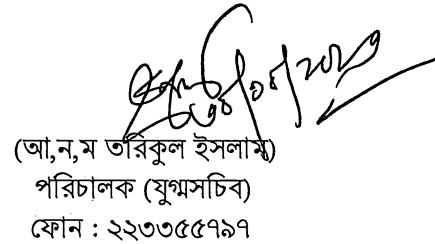 (আ,ন,ম তরিকুল ইসলাম)
পরিচালক (যুগ্মসচিব)
ফোন : ২২৩৩৫৫৭৯৭